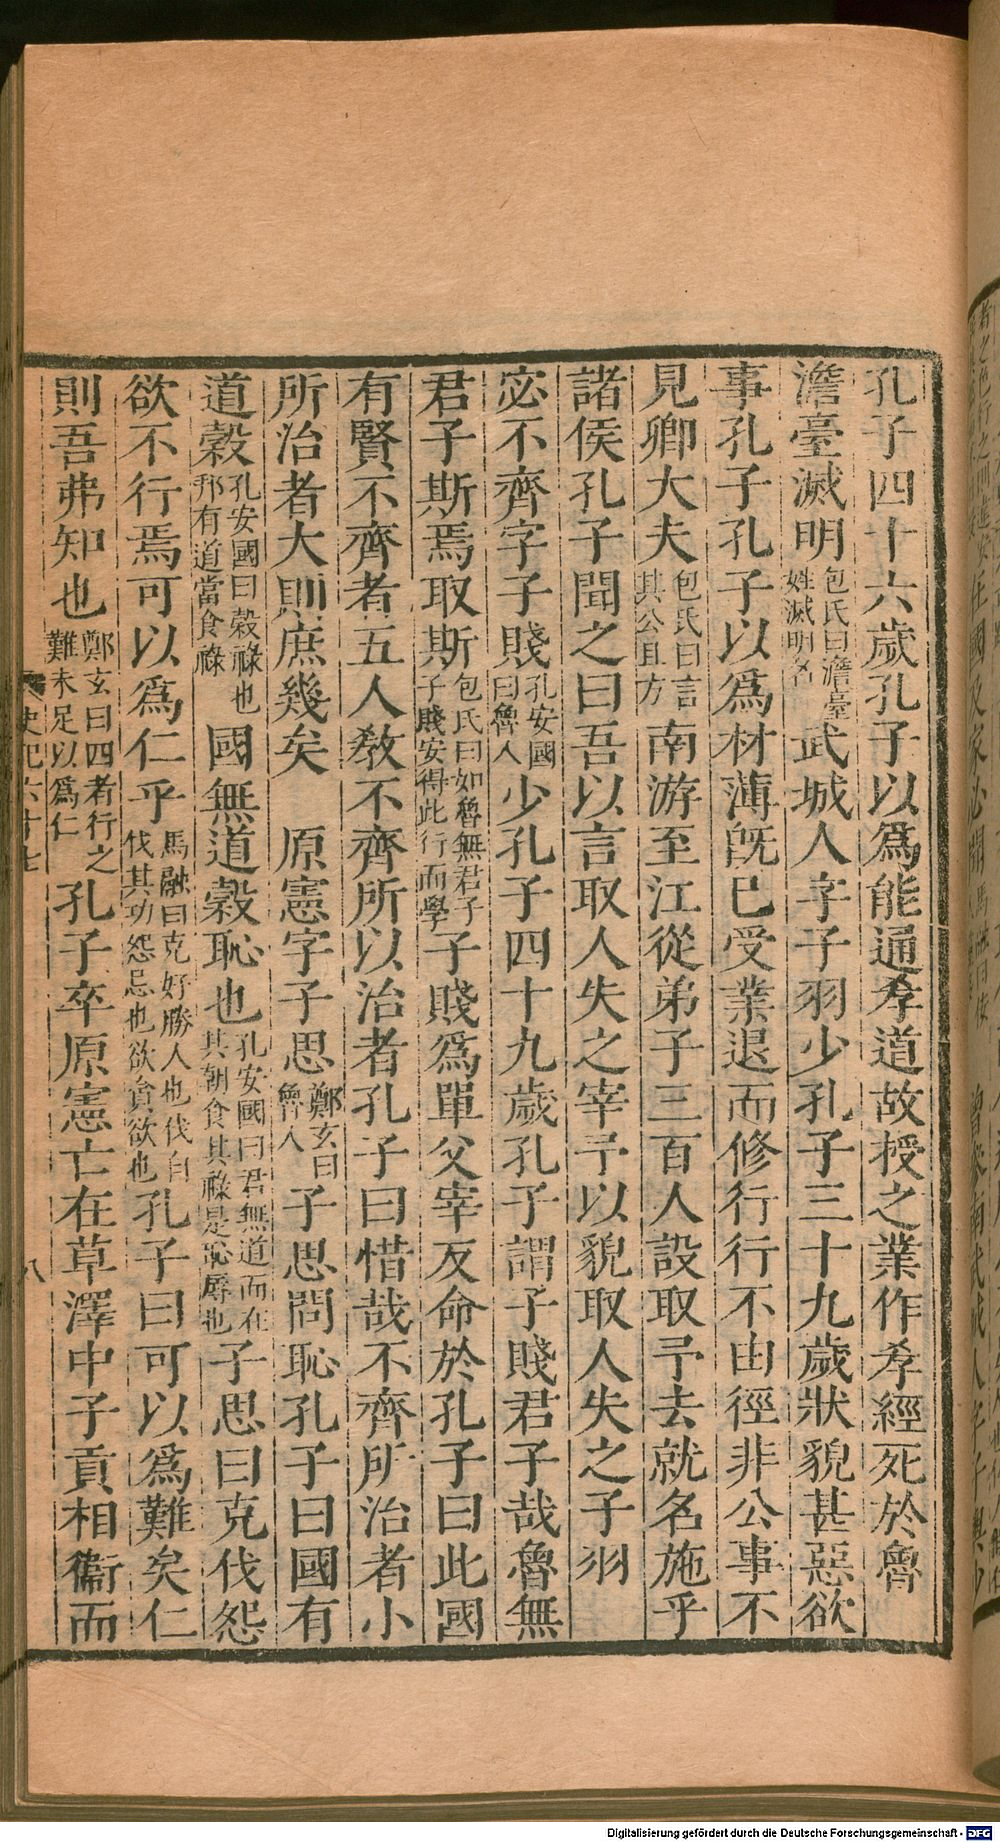 孔子四十六歲孔子以爲能通孝道故授之業作孝經死於魯
澹臺滅明包氏曰澹臺姓滅明名武城人字子羽少孔子三十九歲狀貌甚惡欲
事孔子孔子以爲材薄旣已受業退而修行行不由徑非公事不
見卿大夫包氏曰言其公且方南游至江從弟子三百人設取予去就名施乎
諸侯孔子聞之曰吾以言取人失之宰予以貌取人失之子羽
宓不齊字子賤孔安國曰魯人少孔子四十九歲孔子謂子賤君子哉魯無
君子斯焉取斯包氏曰如魯無君子子賤安得此行而學子賤爲單父宰反命於孔子曰此國
有賢不齊者五人敎不齊所以治者孔子曰惜哉不齊所治者小
所治者大則庶幾矣　原憲字子思鄭玄曰魯人子思問恥孔子曰國有
道穀孔安國曰穀祿也邦有道當食祿國無道穀恥也孔安國曰君無道而在其朝食其祿是恥辱也子思曰克伐怨
欲不行焉可以爲仁乎馬融曰克好勝人也伐自伐其功怨忌也欲貪欲也孔子曰可以爲難矣仁
則吾弗知也鄭玄曰四者行之難未足以爲仁孔子卒原憲亡在草澤中子貢相衞而
史記六十七
八
Digitalisierung gefördert durch die Deutsche Forschungsgemeinschaft - DFG